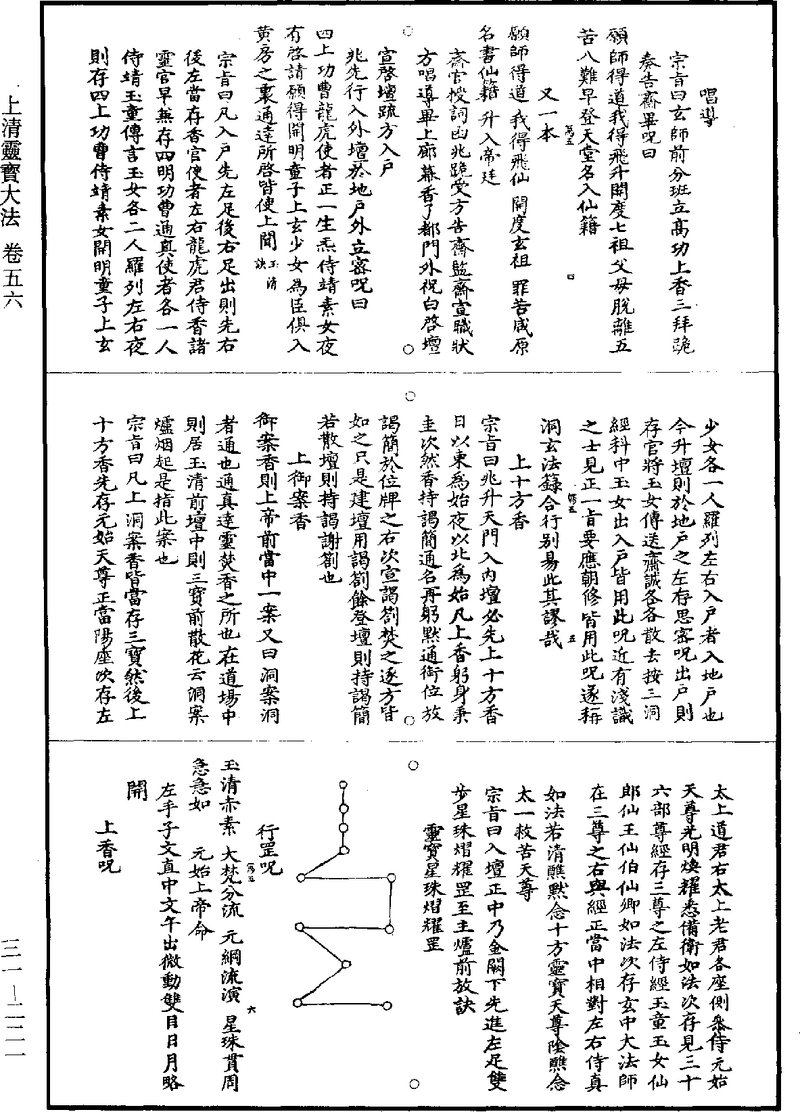 上清靈寶大法 卷五六
三一—二一一
唱導
宗旨曰玄師前分班立高功上香三拜跪
奏告齋畢呪曰
願師得道我得飛升開度七祖父母脫離五
苦八難早登天堂名入仙籍
又一本
願師得道 我得飛仙 開度玄祖 罪苦咸原
名書仙籍 升入帝廷
齋官授詞函兆跪受方告齋監齋宣職狀
方唱導畢上廊幕香了都門外祝白啓壇
宣啓壇疏方入戶
兆先行入外壇於地戶外立密呪曰
四上功曹龍虎使者正一生炁侍靖素女夜
有啓請願得開明童子上玄少女為臣俱入
黄房之裏通達所啓皆使上聞 玉清訣
宗旨曰凡入戶先左足後右足出則先右
後左當存香官使者左右龍虎君侍香諸
靈官早無存四明功曹通真使者各一人
侍靖玉童傳言玉女各二人羅列左右夜
則存四上功曹侍靖素女開明童子上玄
少女各一人羅列左右入戶者入地戶也
今升壇則於地戶之左存思密呪出戶則
存官將玉女傳送齋誠各各散去按三洞
經科中玉女出入戶皆用此呪近有淺識
之士見正一旨要應朝修皆用此呪遂稱
洞玄法籙合行別易此其謬哉
上十方香
宗旨曰兆升天門入內壇必先上十方香
日以東為始夜以北為始凡上香躬身秉
圭次然香持謁簡通名再躬默通銜位放
謁簡於位牌之右次宣謁劄焚之逐方皆
如之只是建壇用謁劄餘登壇則持謁簡
若散壇則持謁謝劄也
上御案香
御案香則上帝前當中一案又曰洞案洞
者通也通真達靈焚香之所也在道場中
則居玉清前壇中則三寶前散花云洞案
爐烟起是指此案也
宗旨曰凡上洞案香皆當存三寶然後上
十方香先存元始天尊正當陽座次存左
太上道君右太上老君各座側衆侍元始
天尊光明煥耀悉備衛如法次存見三十
六部尊經存三尊之左侍經玉童玉女仙
郎仙王仙伯仙卿如法次存玄中大法師
在三尊之右與經正當中相對左右侍真
如法若清醮默念十方靈寶天尊陰醮念
太一救苦天尊
宗旨曰入壇正中乃金闕下先進左足雙
步星珠熠耀罡至主爐前放訣
靈寶星珠熠耀罡
行罡呪
玉清赤素 大梵分流 元綱流演 星珠貫周
急急如 元始上帝命
左手子文直中文午出微動雙目日月略
開
上香呪